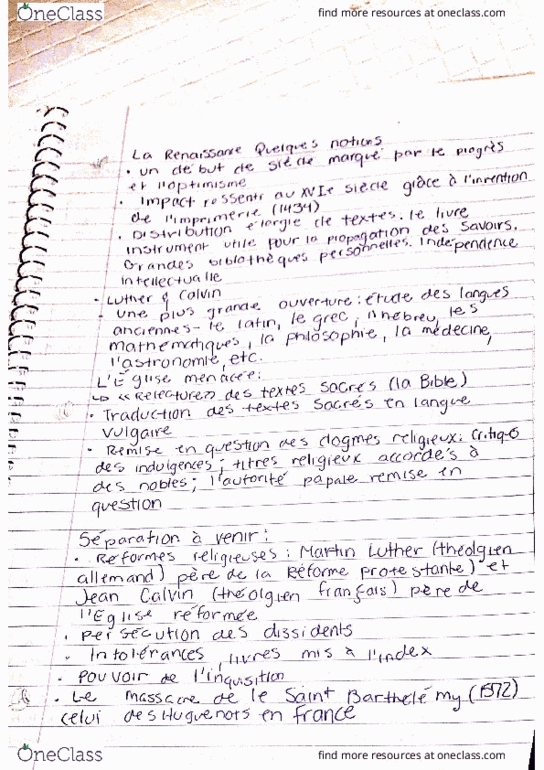 OneClass
find more resources at oneclass.com
La Renaissance Quelques notions
• un début de siècle marqué par le progrès
et l'optimisme
• Impact ressenti au XVIe siècle grâce à l'invention
de l'imprimerie (1434)
• Distribution élargie de textes. le livre
instrument utile pour la propagation des savoirs.
Grandes bibliothèques personnelles. Indépendence
intellectuelle
• Luther & Calvin
- une plus grande ouverture : étude des langues
anciennes - le latin, le grec, l'hébreu, les
mathématiques, la philosophie, la médecine,
l'astronomie, etc.
L'Église menacée :
↳ «Relecture» des textes sacrés (la Bible)
• Traduction des textes sacrés en langue
vulgaire
• Remise en question des dogmes religieux :
des indulgences ; titres religieux accordés à
des nobles ; l'autorité papale remise en
question
Séparation à venir :
• Réformes religieuses : Martin Luther (théolgien
allemand) père de la Réforme protestante) et
Jean Calvin (théolgien français) père de
l'Église réformée
• persécution des dissidents
• Intolérances, livres mis à l'index
• pouvoir de l'inquisition
• Le massacre de le Saint Barthélémy (1572)
celui des Huguenots en france
OneClass
find more resources at oneclass.com